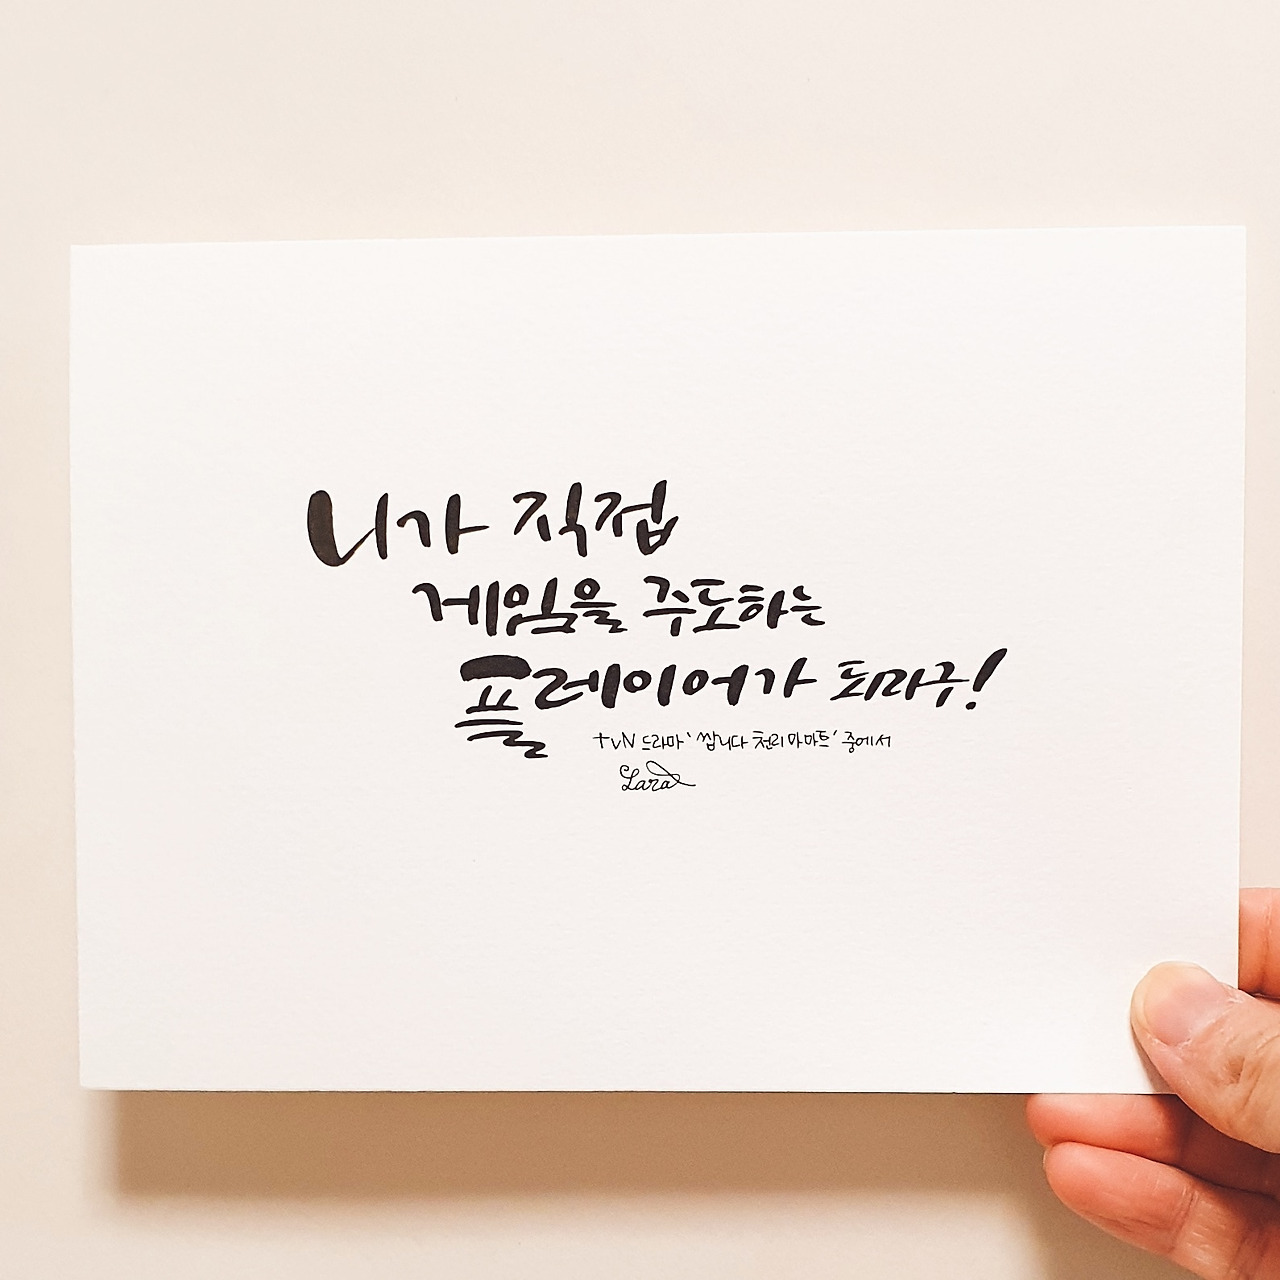 니가 직접
게임을 주도하는
플레이어가 되라구!
tvN 드라마 '쌉니다 천리마마트' 중에서
Lara